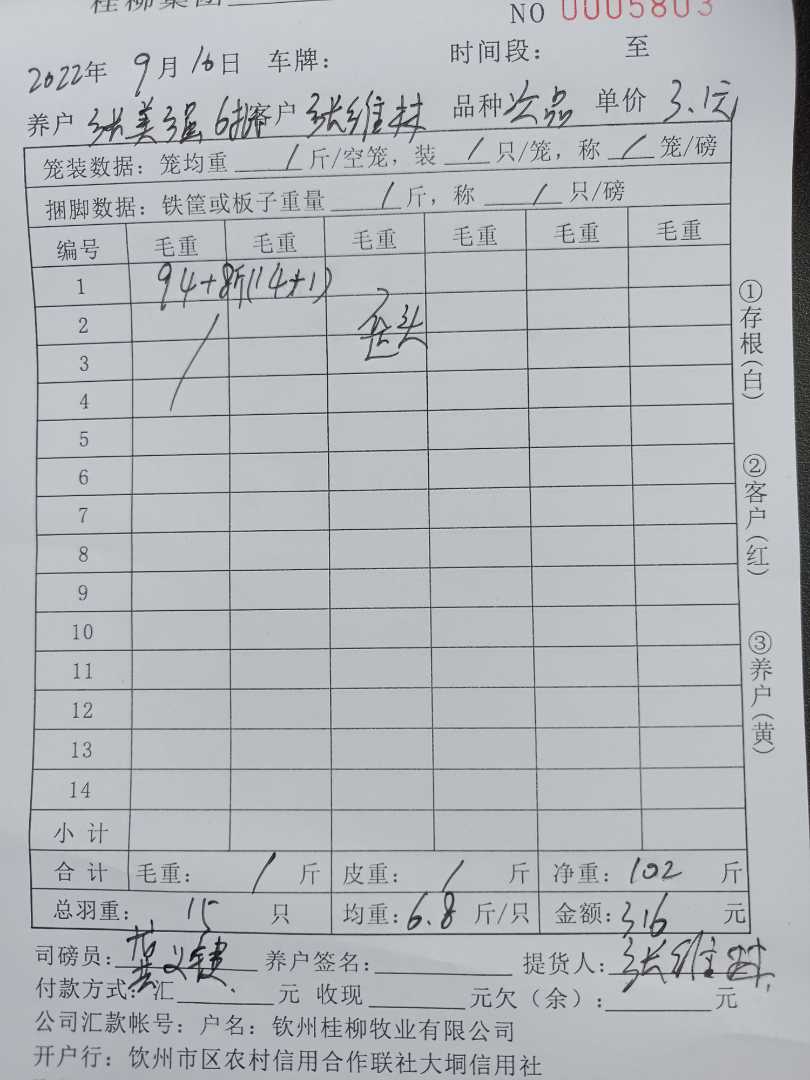 桂柳集团
NO 0005803
2022年 9月10日 车牌： 时间段： 至
养户 张美强6批 客户 张维林 品种 次品 单价 3.1元
笼装数据：笼均重 / 斤/空笼，装 / 只/笼，称 / 笼/磅
捆脚数据：铁筐或板子重量 / 斤，称 / 只/磅
编号 毛重 毛重 毛重 毛重 毛重 毛重
1 94+8斤(14+1)
2 歪头
3
4
5
6
7
8
9
10
11
12
13
14
小计
合计 毛重： / 斤 皮重： / 斤 净重：102 斤
总羽重： 15 只 均重：6.8 斤/只 金额：316 元
司磅员： 养户签名： 提货人：张维林
付款方式：汇 元 收现 元欠（余）： 元
公司汇款帐号：户名：钦州桂柳牧业有限公司
开户行：钦州市区农村信用合作联社大垌信用社
①存根(白)
②客户(红)
③养户(黄)